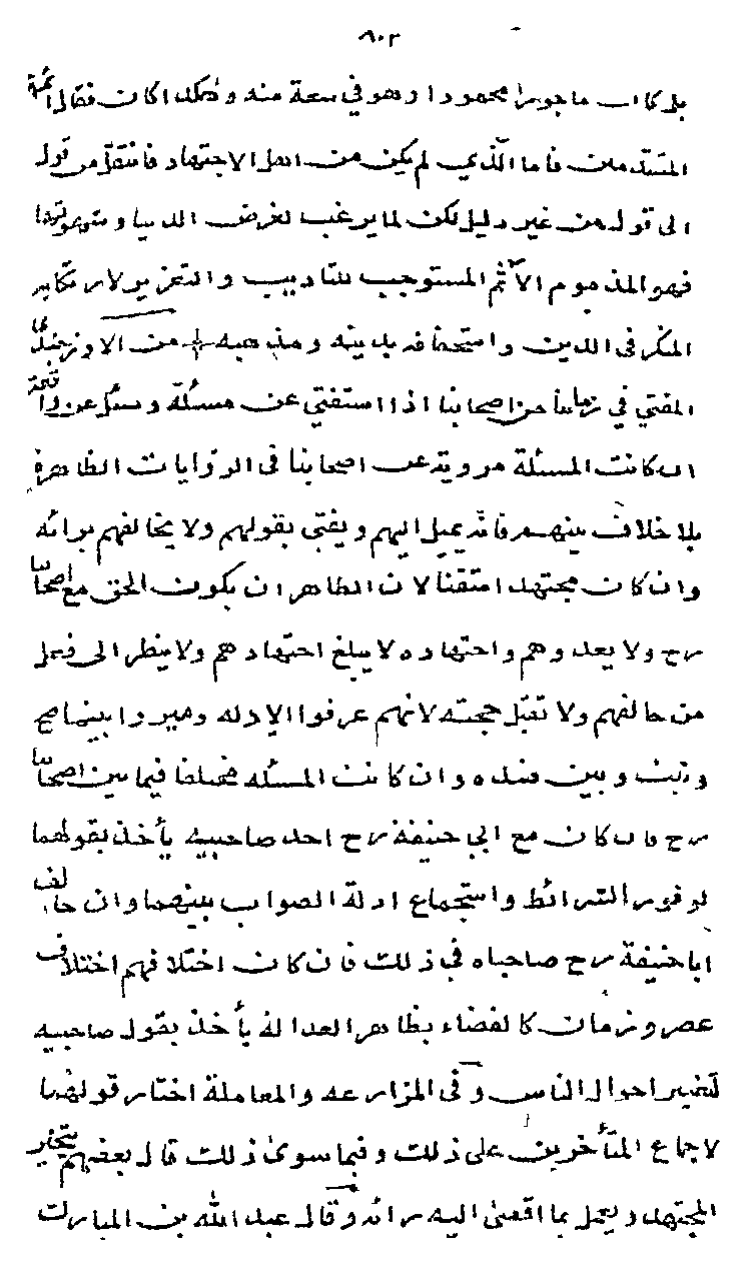 ٨٠٢
بل كان ماجورا محمودا وهو في سعة منه وهكذا كان فقال ائمة
المتقدمين فاما الذي لم يكن من اهل الاجتهاد فانتقل من قول
الى قول من غير دليل لكن لما يرغب لغرض الدنيا وشهوتها
فهو المذموم الآثم المستوجب للتاديب والتعزير لارتكابه
المنكر في الدين واستخفافه بدينه ومذهبه من الاوزجندى
المفتي في زماننا من اصحابنا اذا استفتي عن مسئلة وسئل عن واقعة
ان كانت المسئلة مروية عن اصحابنا فى الروايات الظاهرة
بلا خلاف بينهم فانه يميل اليهم ويفتى بقولهم ولا يخالفهم برائه
وان كان مجتهدا متقنا لان الظاهر ان يكون الحق مع اصحابنا
رح ولا يعدوهم واجتهاده لا يبلغ اجتهادهم ولا ينظر الى قول
من خالفهم ولا تقبل حجته لانهم عرفوا الادله وميزوا بينما صح
وثبت وبين ضده وان كانت المسئله مختلفا فيما بين اصحابنا
رح فان كان مع ابي حنيفة رح احد صاحبيه يأخذ بقولهما
لوفور الشرائط واستجماع ادلة الصواب بينهما وان خالف
ابا حنيفة رح صاحباه في ذلك فان كان اختلافهم اختلاف
عصر وزمان كالقضاء بظاهر العدالة يأخذ بقول صاحبيه
لتغير احوال الناس وفى المزارعه والمعاملة اختار قولهما
لاجماع المتأخرين على ذلك وفيما سوى ذلك قال بعضهم يتخير
المجتهد ويعمل بما افضى اليه رائه وقال عبد الله بن المبارك